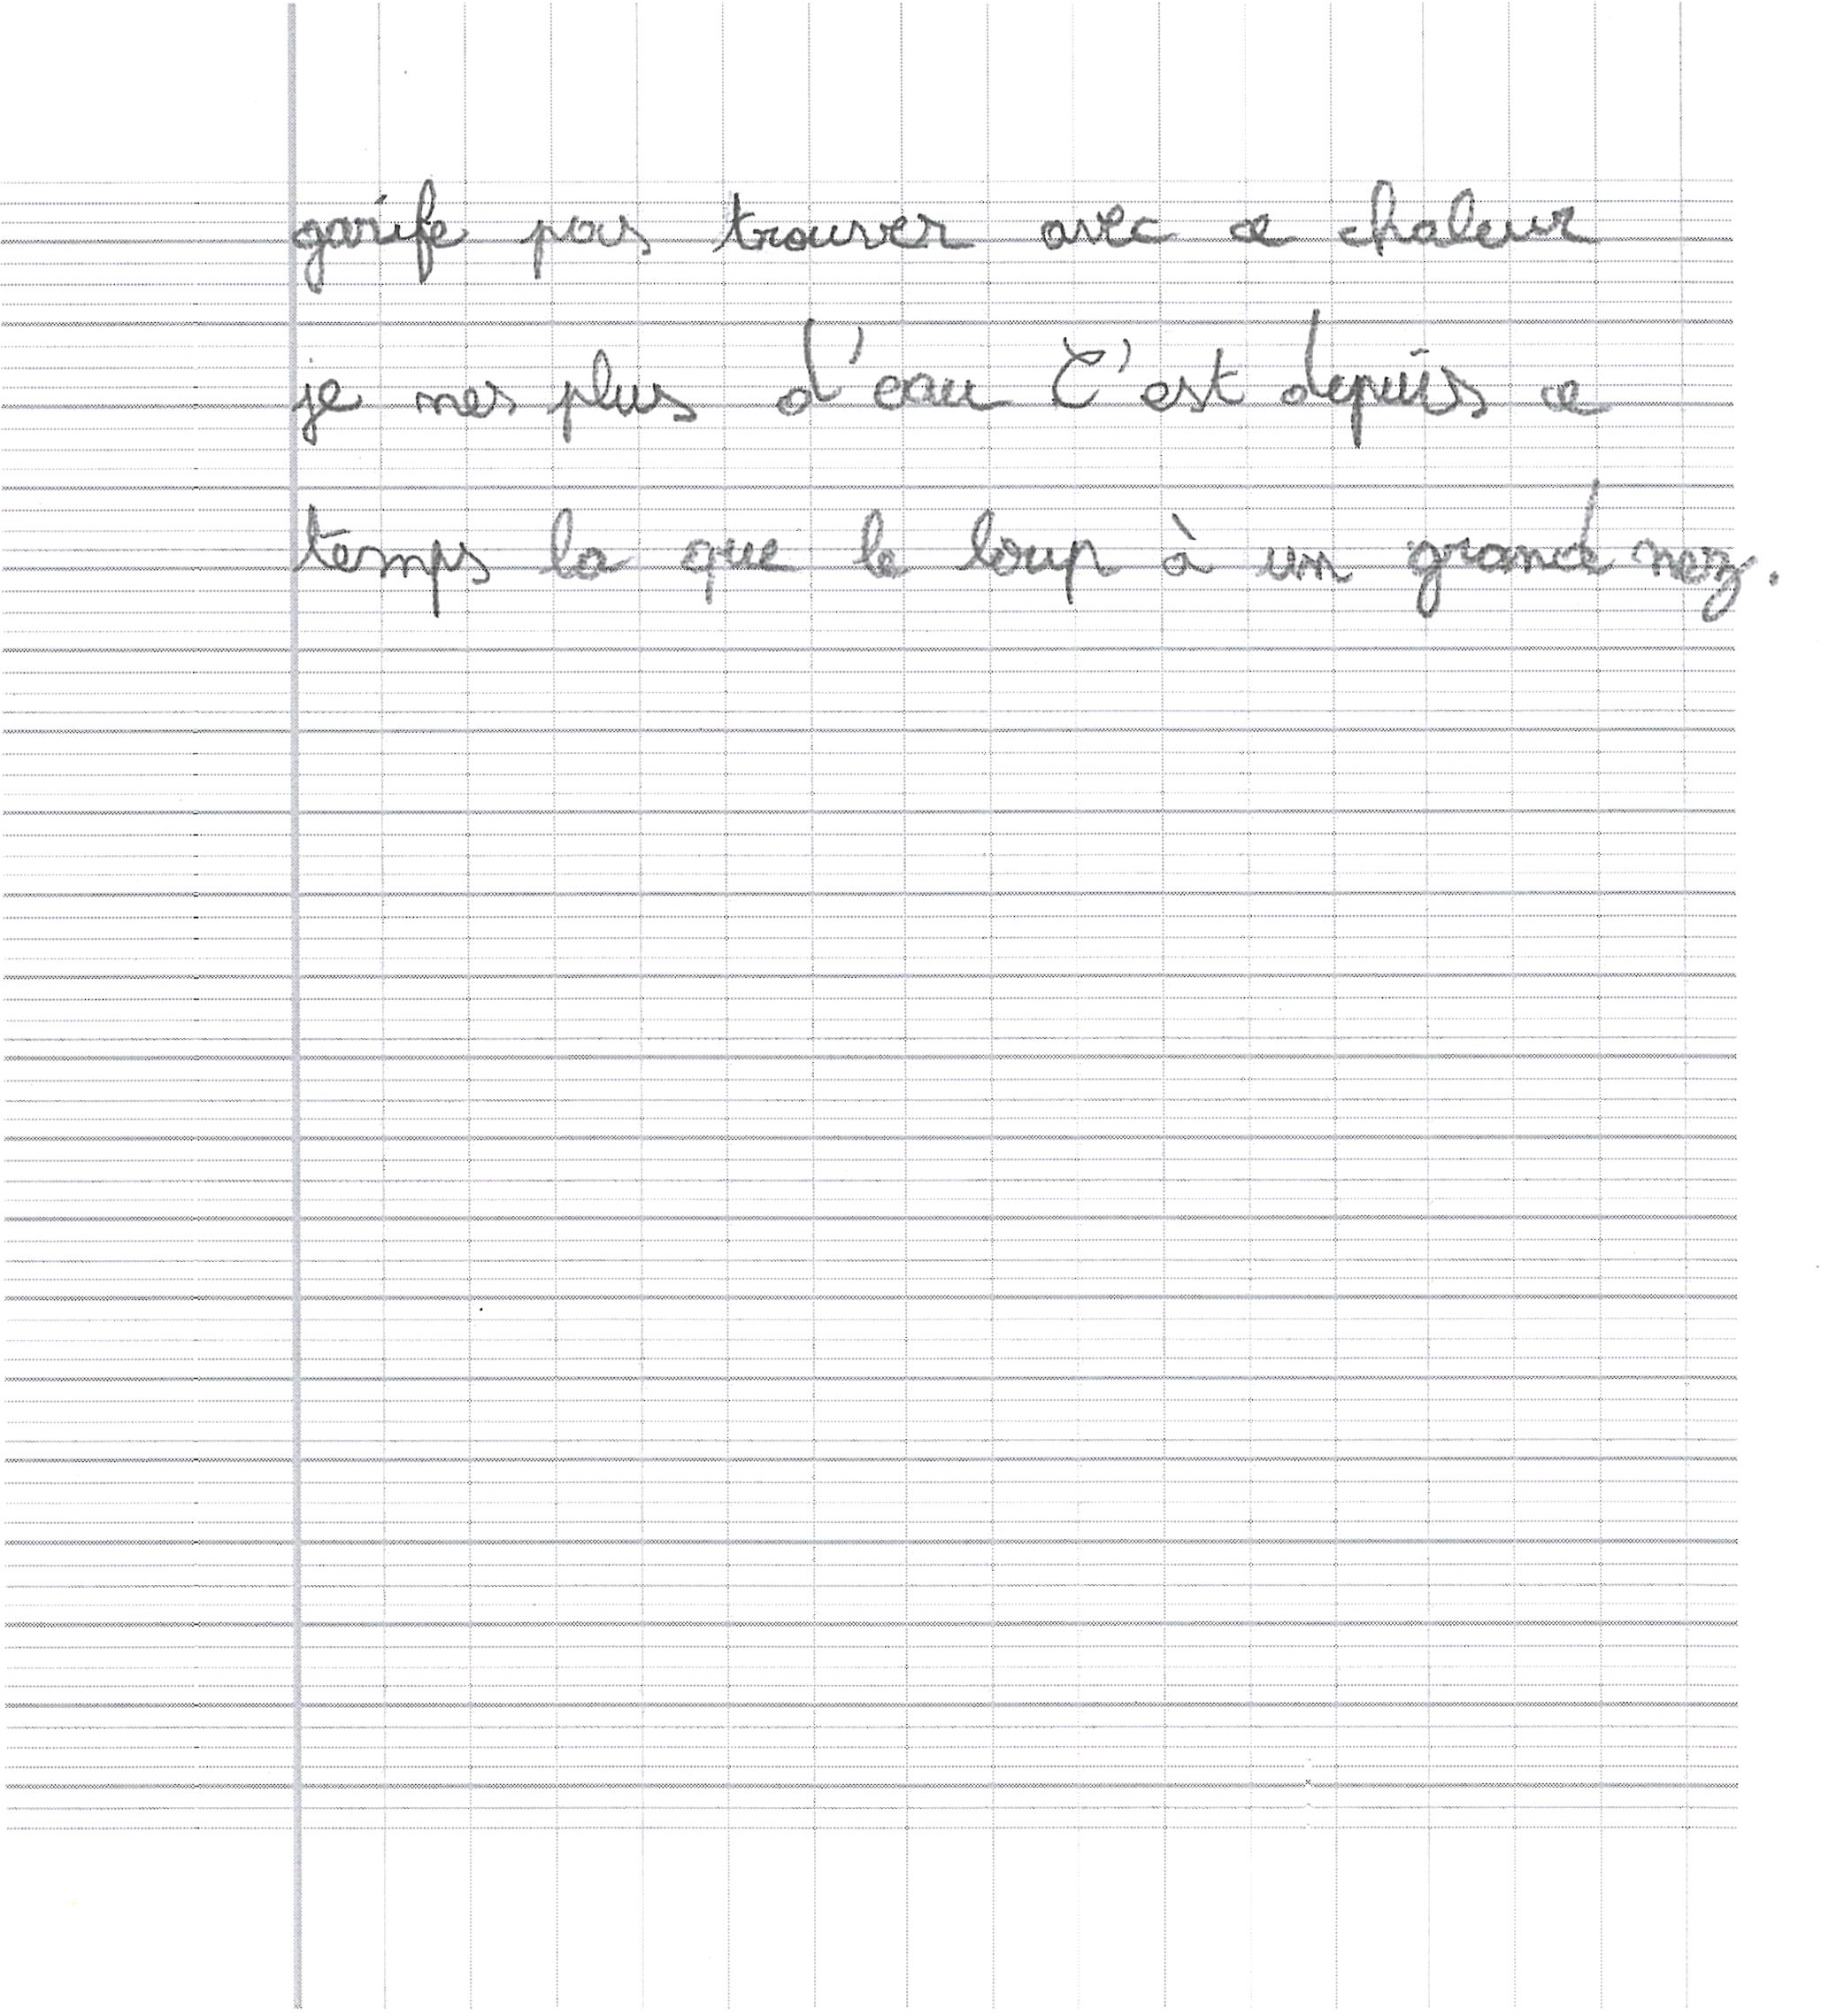 garife pas trouver avec ce chaleur
je nes plus d'eau C'est depuis ce
temps la que le loup à un grand nez.